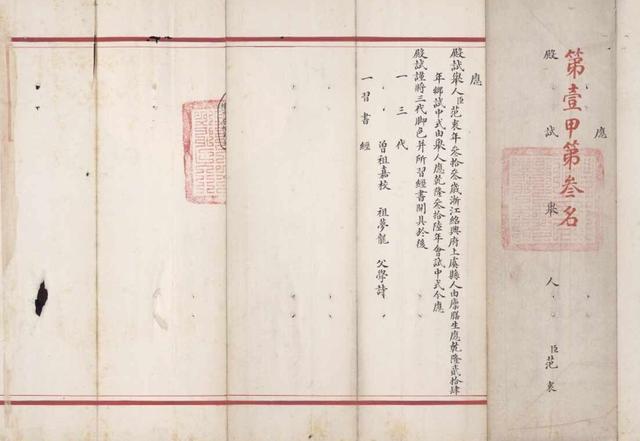 應
第壹甲第叁名
殿試舉人臣范衷
應
殿試舉人臣范衷年叁拾叁歲浙江紹興府上虞縣人由廩膳生應乾隆貳拾肆
年鄉試中式由舉人應乾隆叁拾陸年會試中式今應
殿試謹將三代脚色并所習經書開具於後
一三代
曾祖嘉校 祖夢龍 父學詩
一習書經